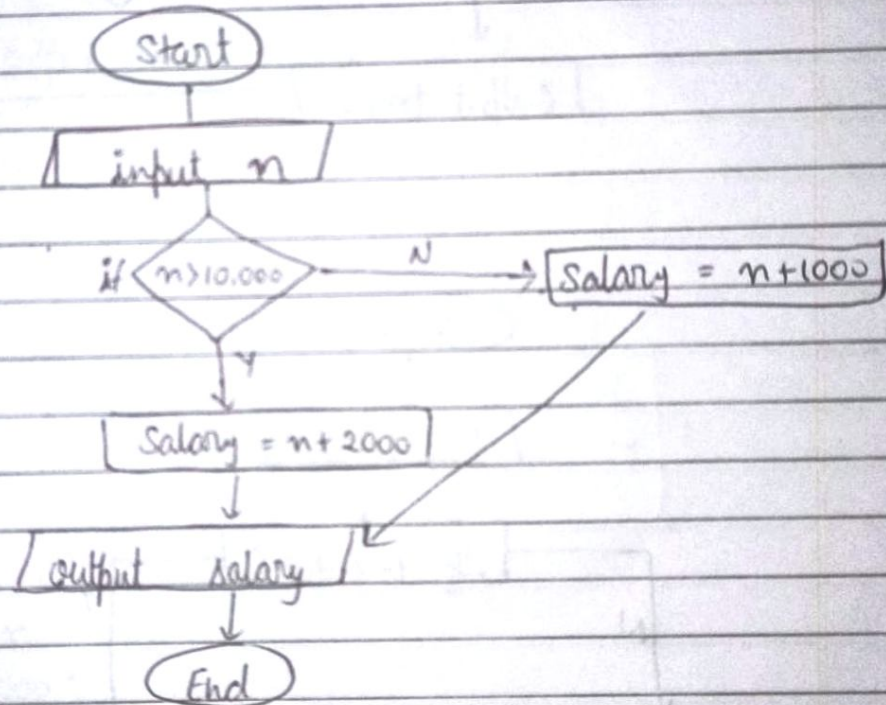 Start
input n
if n>10.000 N Salary = n+1000
Y
Salary = n+2000
output salary
End